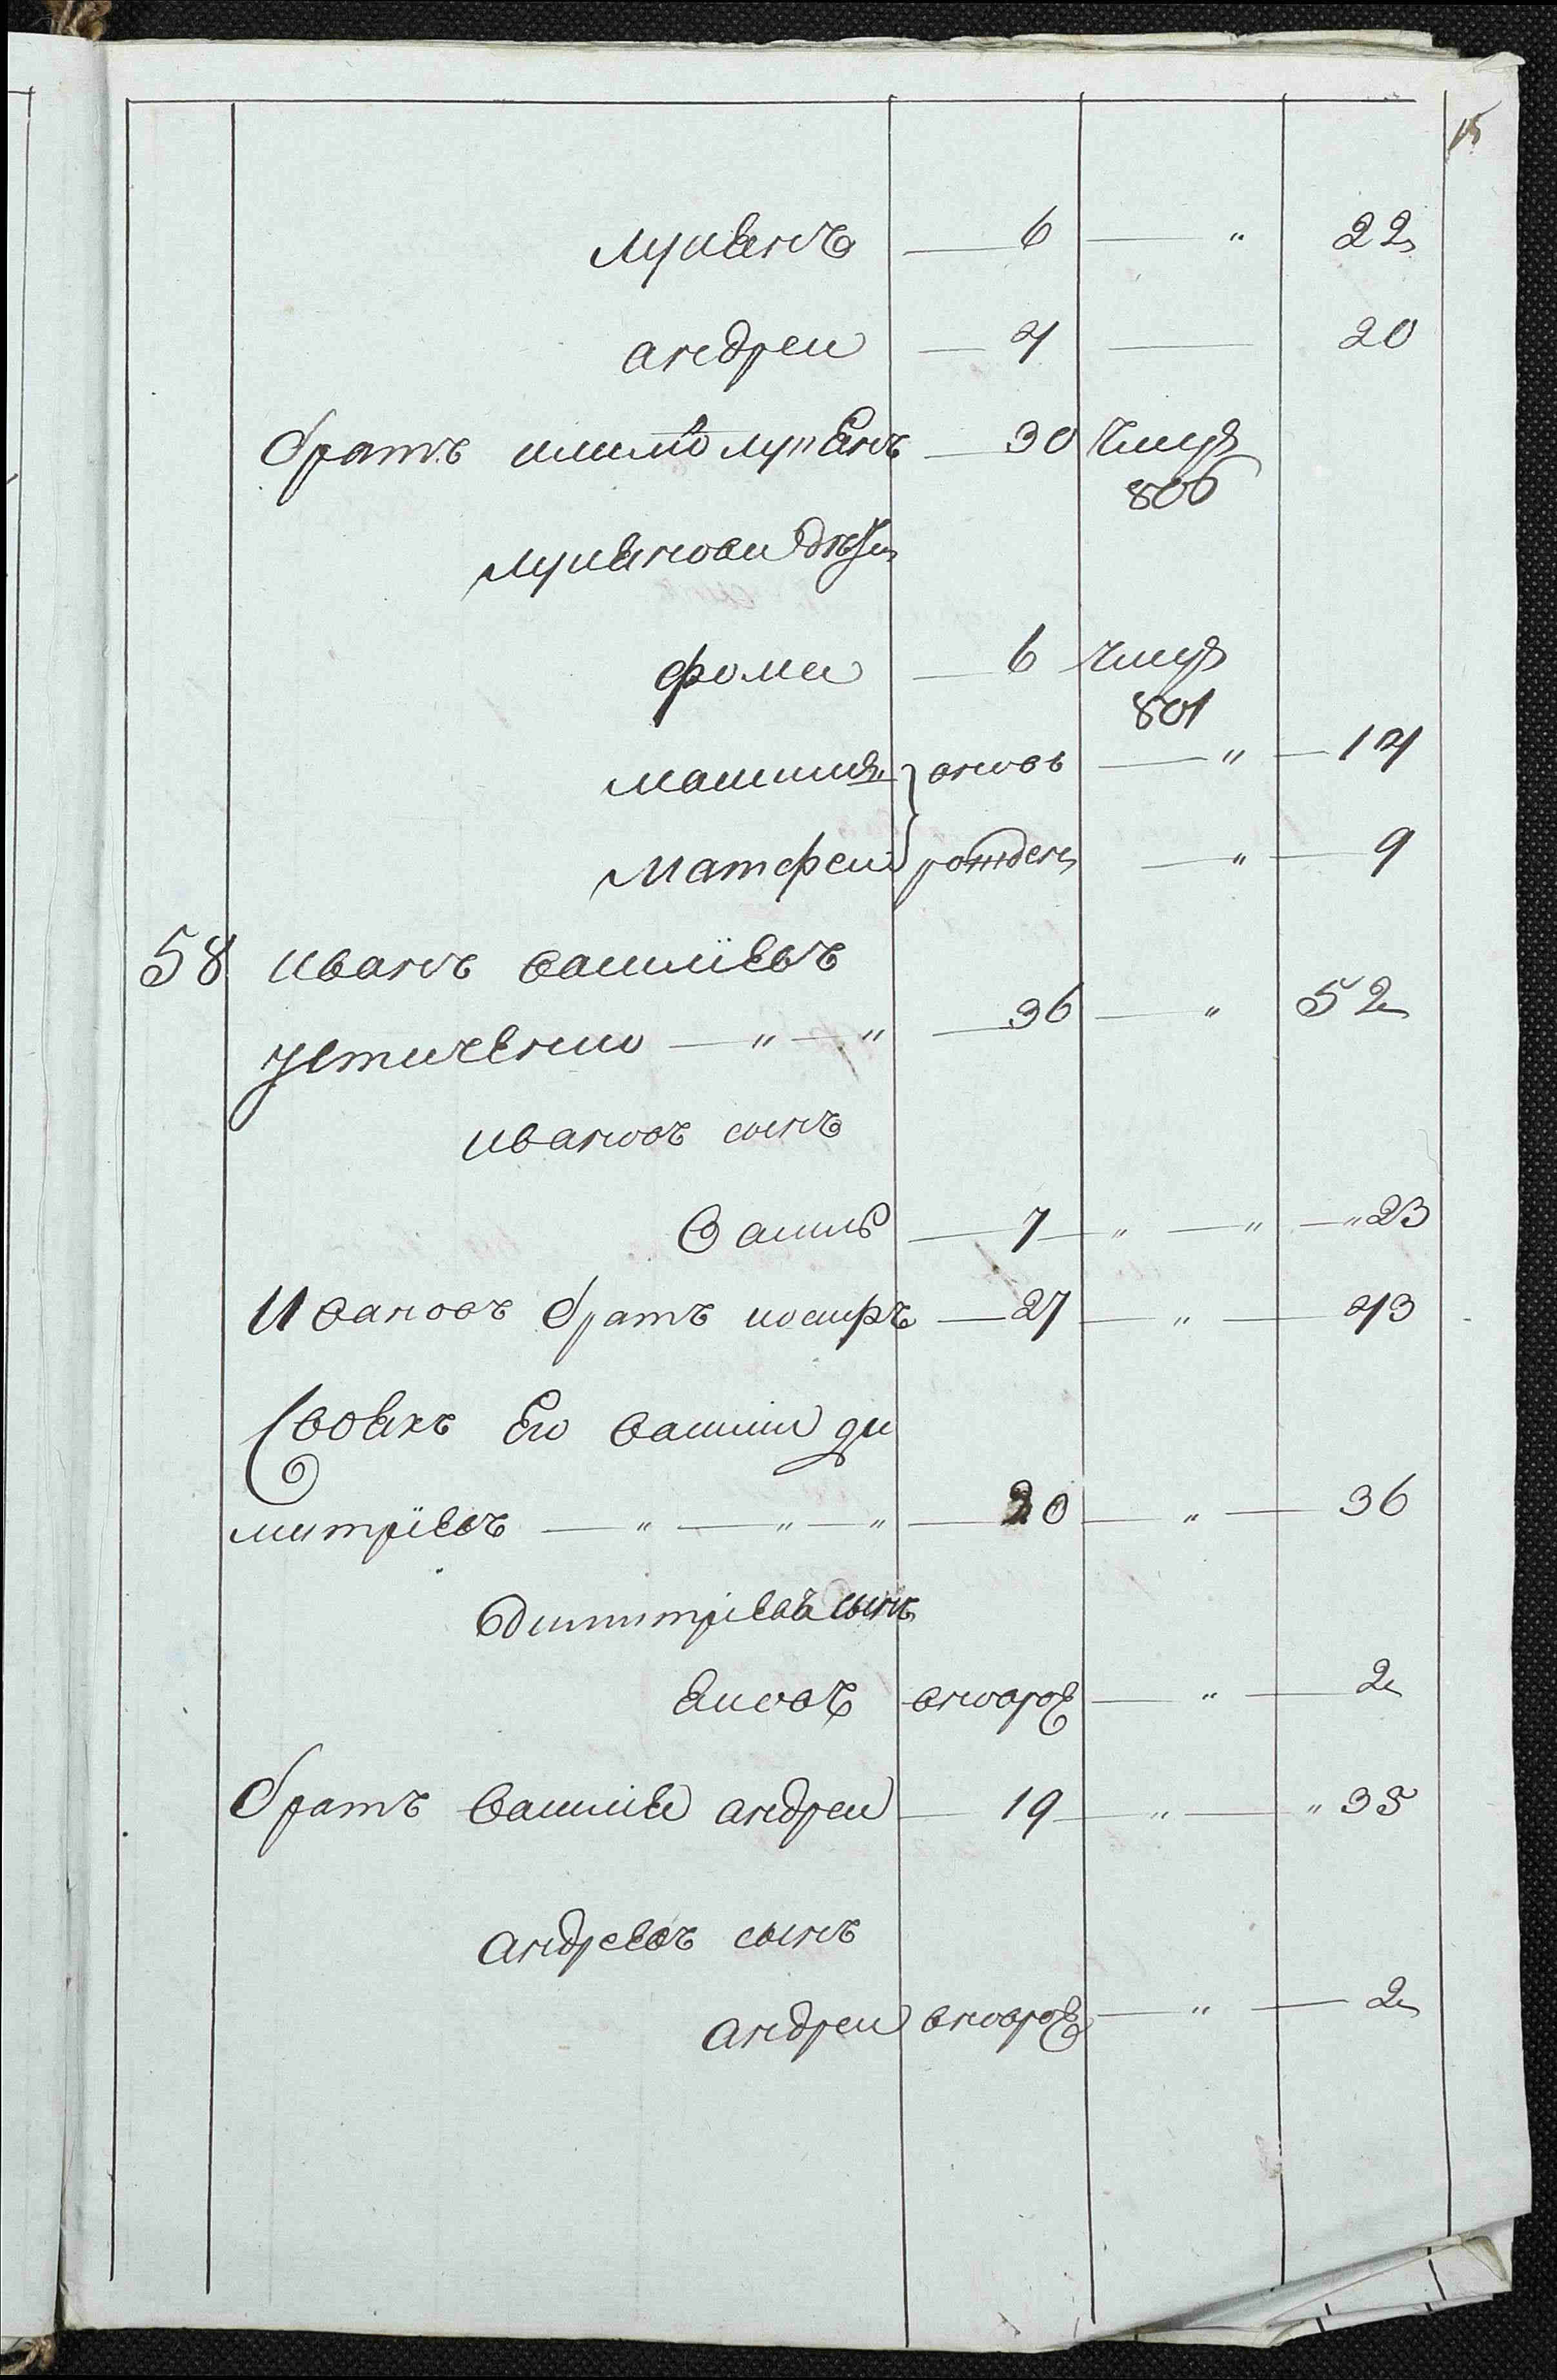 15
лукянъ — 6 — " 22
андреи — 4 — 20
братъ лукянъ — 30 умре
806
лукяновы дети
фома — 6 умре
801
вновь — " — 14
Матфеи рожден — " — 9
58 иванъ василіевъ
устименко — " — " — 36 — " 52
ивановъ сынъ
Василь — 7 — " — " — " 23
Ивановъ братъ иосифъ — 27 — " — 43
Своякъ Его василии ди
митріевъ — " — " — " — 20 — " — 36
димитріевъ сынъ
яковъ вновро — " — 2
братъ василіи андреи — 19 — " — " 35
андреевъ сынъ
андреи вновро — " — 2